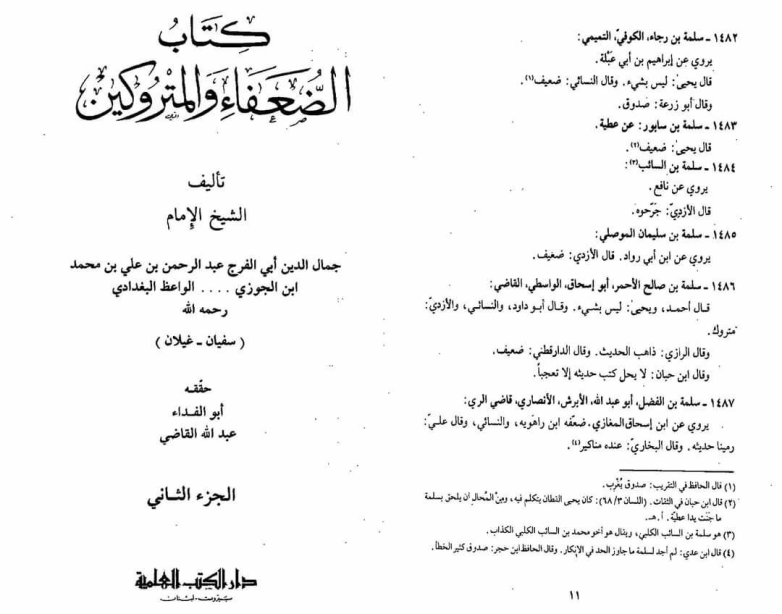 كتاب
الضعفاء والمتروكين
تأليف
الشيخ الإمام
جمال الدين أبي الفرج عبد الرحمن بن علي بن محمد
ابن الجوزي .... الواعظ البغدادي
رحمه الله
( سفيان - غيلان )
حقّقه
أبو الفداء
عبد الله القاضي
الجزء الثاني
دار الكتب العلمية
بيروت - لبنان
١٤٨٢ - سلمة بن رجاء، الكوفيّ، التميمي:
يروي عن إبراهيم بن أبي عَبْلة.
قال يحيىٰ: ليس بشيء. وقال النسائي: ضعيف(١).
وقال أبو زرعة: صدوق.
١٤٨٣ - سلمة بن سابور: عن عطية.
قال يحيىٰ: ضعيف(٢).
١٤٨٤ - سلمة بن السائب(٣):
يروي عن نافع.
قال الأزديّ: جَرّحوه.
١٤٨٥ - سلمة بن سليمان الموصلي:
يروي عن ابن أبي رواد. قال الأزدي: ضعيف.
١٤٨٦ - سلمة بن صالح الأحمر، أبو إسحاق، الواسطي، القاضي:
قال أحمد، ويحيىٰ: ليس بشيء. وقال أبو داود، والنسائي، والأزديّ:
متروك.
وقال الرازي: ذاهب الحديث. وقال الدارقطني: ضعيف.
وقال ابن حبان: لا يحل كتب حديثه إلا تعجباً.
١٤٨٧ - سلمة بن الفضل، أبو عبد الله، الأبرش، الأنصاري، قاضي الري:
يروي عن ابن إسحاق المغازي. ضعّفه ابن راهويه، والنسائي، وقال عليّ:
رمينا حديثه. وقال البخاريّ: عنده مناكير(٤).
(١) قال الحافظ في التقريب: صدوق يُغْرِب.
(٢) قال ابن حبان في الثقات. (اللسان ٦٨/٣): كان يحيى القطان يتكلم فيه، ومِنَ المُحال أن يلحق بسلمة
ما جَنَت يدا عطيّة. أ. هـ.
(٣) هو سلمة بن السائب الكلبي، ويقال هو أخو محمد بن السائب الكلبي الكذاب.
(٤) قال ابن عدي: لم أجد لسلمة ما جاوز الحد في الإنكار. وقال الحافظ ابن حجر: صدوق كثير الخطأ.
١١